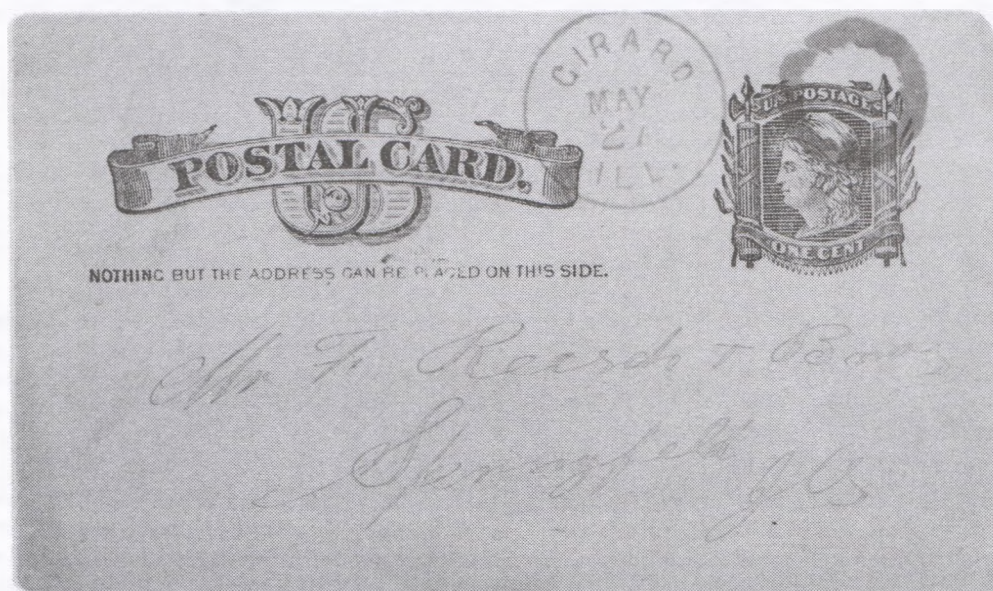 US
POSTAL CARD.
NOTHING BUT THE ADDRESS CAN BE PLACED ON THIS SIDE.
GIRARD
MAY
21
ILL.
U.S. POSTAGE
ONE CENT
Mr F Reisch & Bros
Springfield
Ills